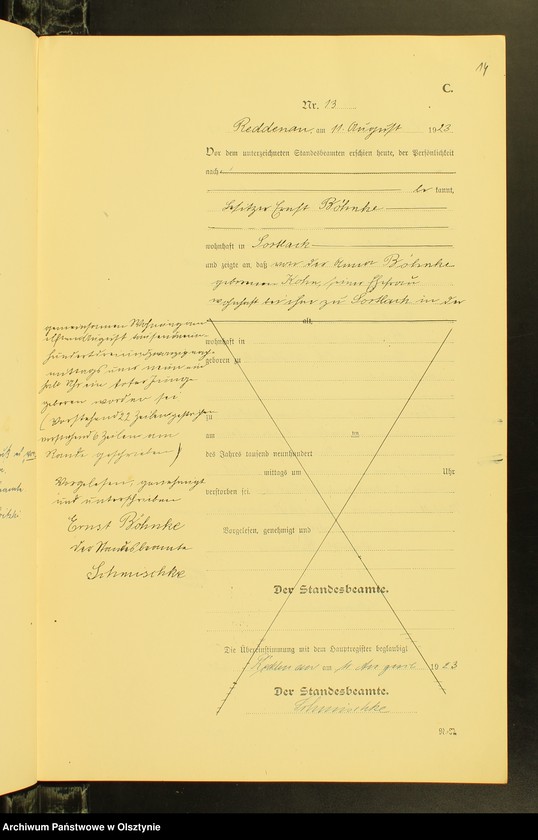 14
C.
Nr. 13
Reddenau, am 11. August 1923
Vor dem unterzeichneten Standesbeamten erschien heute, der Persönlichkeit
nach
kannt,
Besitzer Ernst Böhnke
wohnhaft in Sortlack
und zeigte an, daß von der Anna Böhnke
geborenen Hohn, seiner Ehefrau
wohnhaft bei ihm zu Sortlack in der
alt,
gemeinsamen Wohnung am
elften August tausendneun-
hundertdreiundzwanzig nach-
mittags um neun ein
halb Uhr ein toter Junge
geboren worden sei
(Vorstehend 22 Zeilen gestrichen
vorstehend 6 Zeilen am
Rande geschrieben)
Vorgelesen, genehmigt
und unterschrieben
Ernst Böhnke
Der Standesbeamte
Schmischke
wohnhaft in
geboren zu
zu
am
des Jahres tausend neunhundert
mittags um Uhr
verstorben sei.
Vorgelesen, genehmigt und
Der Standesbeamte.
Die Übereinstimmung mit dem Hauptregister beglaubigt
Reddenau, am 11. August 1923
Der Standesbeamte.
Schmischke
Archiwum Państwowe w Olsztynie